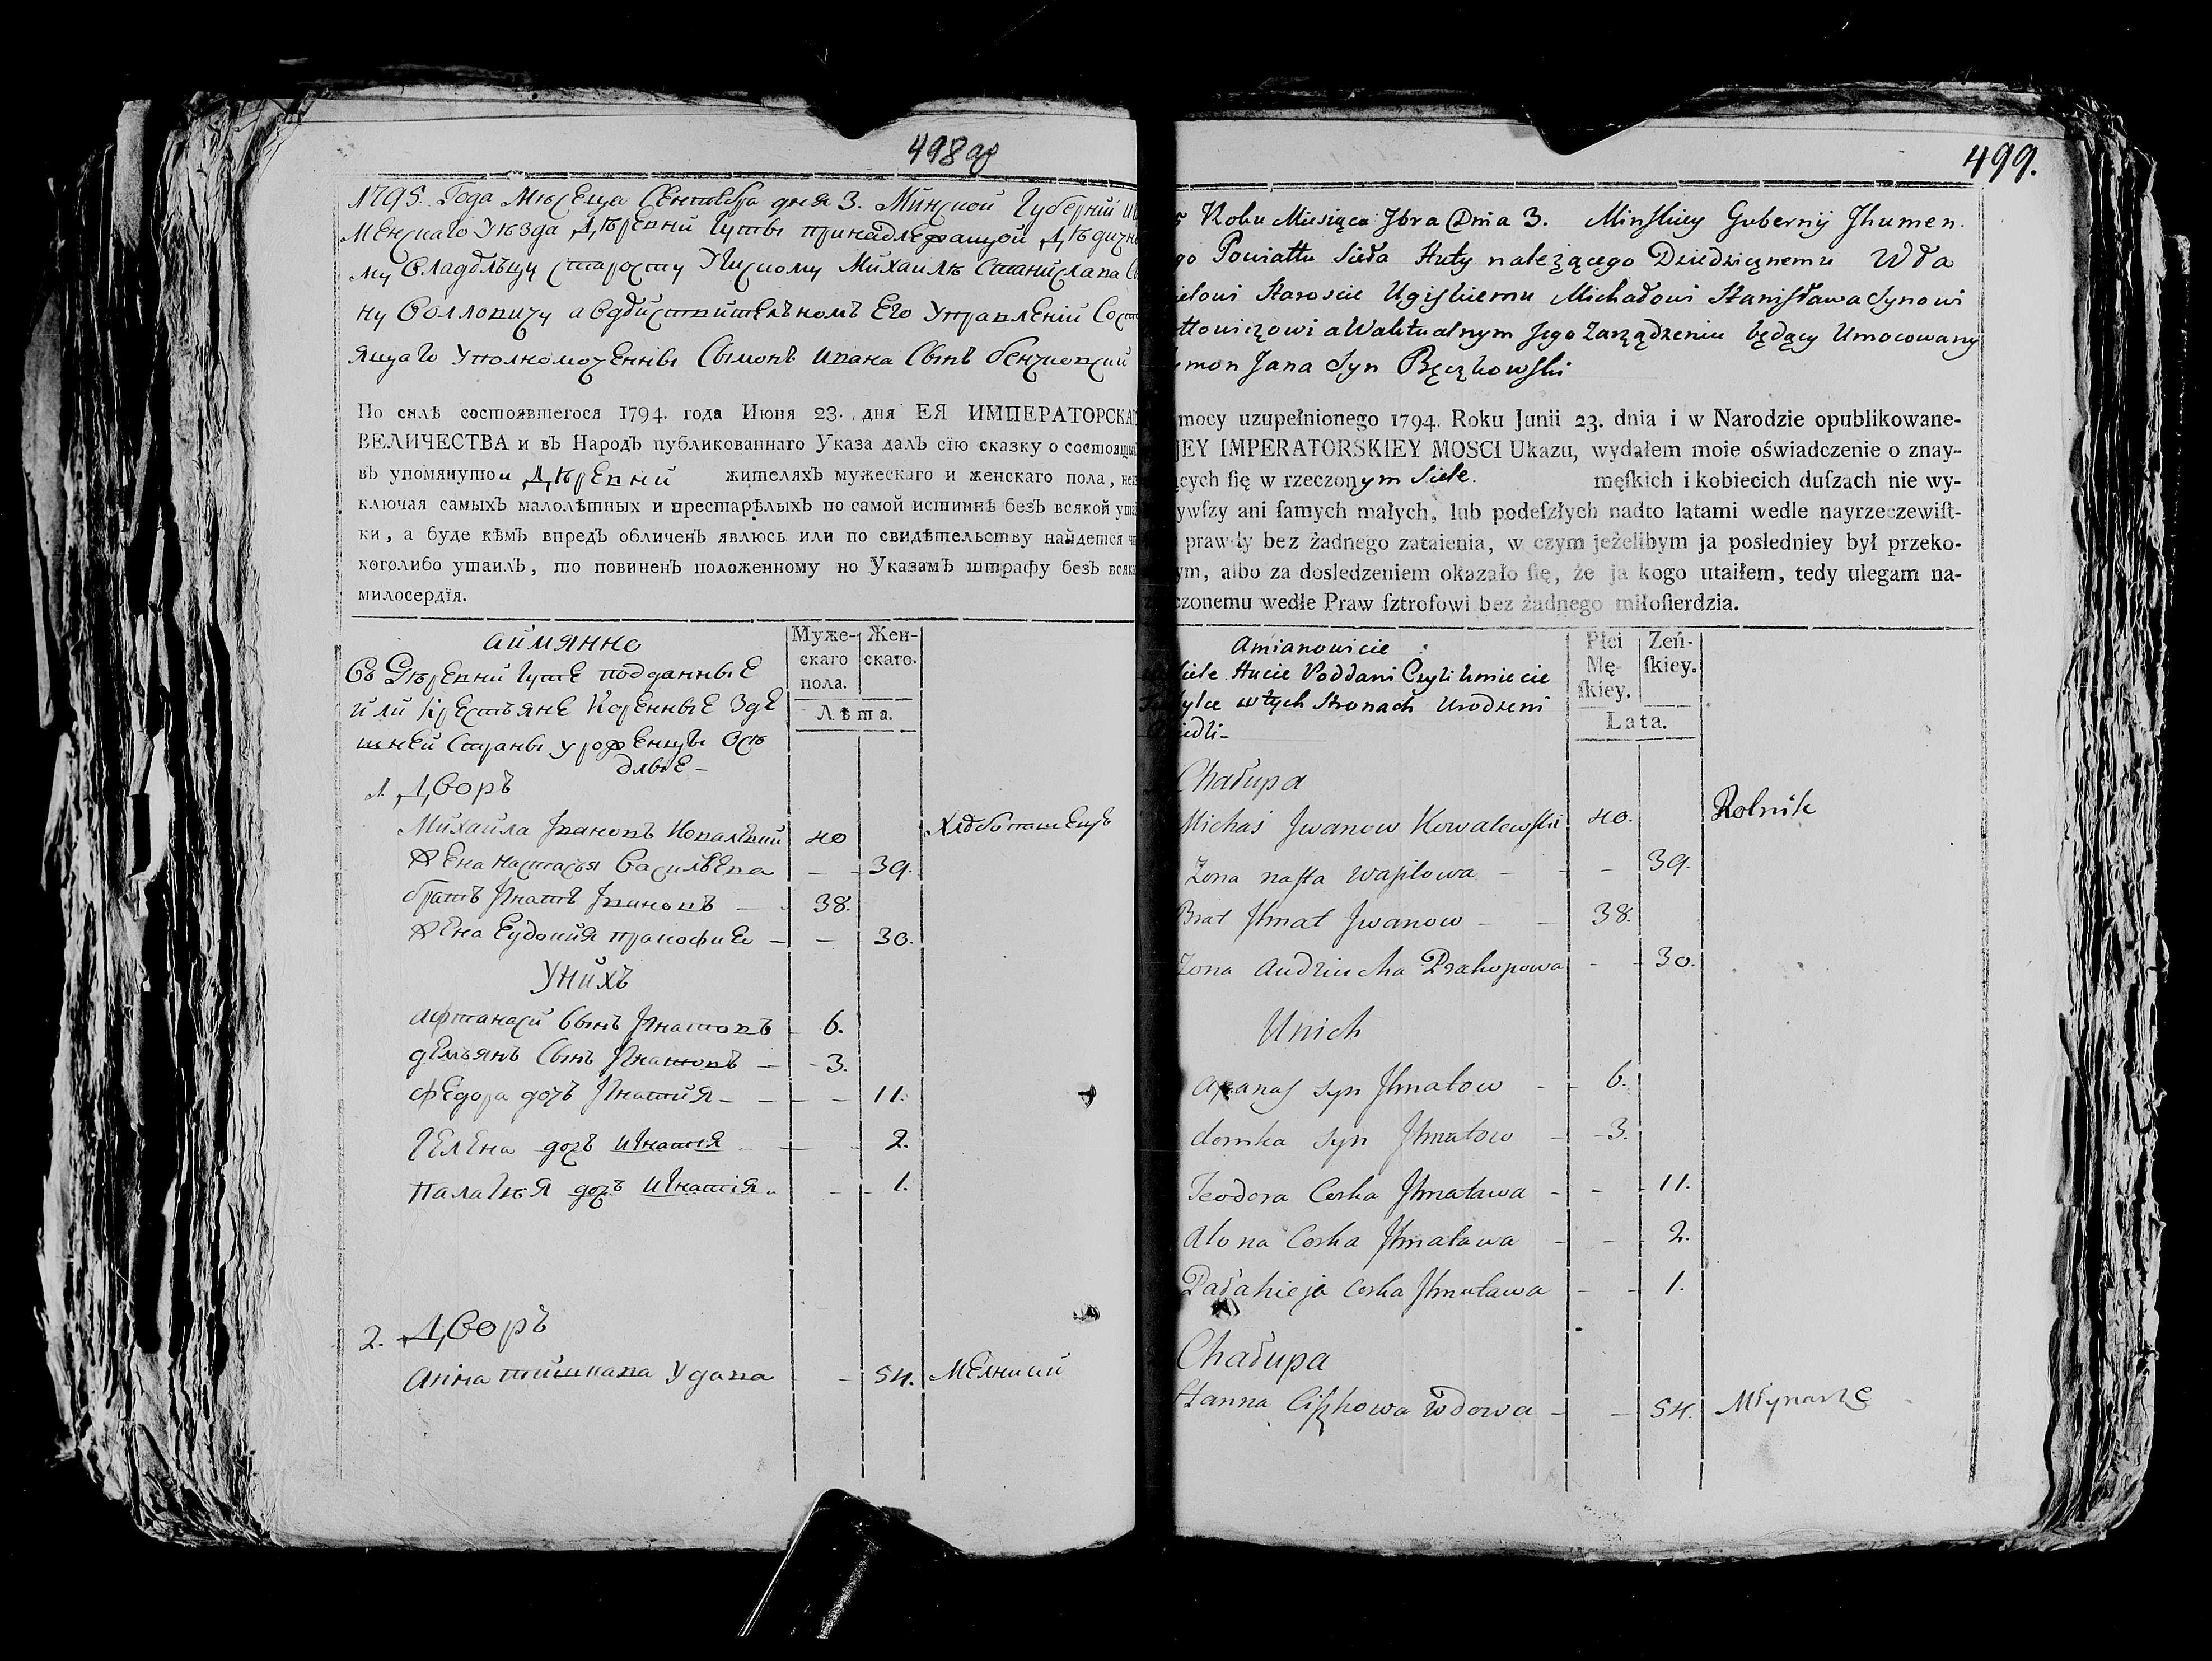 498 об
1795. Года Мѣсеца Сентебра дня 3. Минской Губернїи И
менскаго Уѣзда Дѣревни Гуты принадлежащой Дѣдичн
му Владѣлцу старосту Михаилѣ Станислава С
ну Волловичу а вдѣйствителномъ Его Управленїи Сост
ящаго Уполномоченны Сымонъ Ивана Сынъ Бенчковский
По силѣ состоявшегося 1794. года Июня 23. дня ЕЯ ИМПЕРАТОРСКА
ВЕЛИЧЕСТВА и въ Народѣ публикованнаго Указа далъ сїю сказку о состоящи
въ упомянутои Дѣревни жителяхъ мужескаго и женскаго пола, неи
ключая самыхъ малолѣтныхъ и престарѣлыхъ по самой истиннѣ безъ всякой ута
ки, а буде кѣмъ впредъ обличенъ явлюсь или по свидѣтельству найдется ч
коголибо утаилъ, то повиненъ положенному по Указамъ штрафу безъ всяк
милосердїя.
аимянно
Въ Дѣревни Гуте подданные
или Крестьяне Коренные Зде
шней Страны уроженцы Осѣ
длые –
Муже-
скаго
пола.
Жен-
скаго.
Лѣта.
1. Дворъ
Михаила Iвановъ Ковалевкий 40 Хлебопашецъ
Жена Настасья Василѣва – – 39.
братъ Iгнатъ Iвановъ – 38.
Жена Евдокия прокофив – – 30.
Унихъ
Афтанасй Сынъ Iгнатовъ – 6.
демьянъ Сынъ Iгнатовъ – – 3.
Федора дочъ Iгнатия – – – – 11.
Гелена дочъ Игнатїя – 2.
Палагѣя дочъ Игнатїя – – 1.
2. Дворъ
Анна тишкава Удава – 54. Мелники
499.
5 Roku Miesiąca 7bra Dnia 3. Minskiey Gubernij Jhumen.
go Powiattu Sieła Huty należącego Dziedzicznemu Wła
ielowi Staroscie Michałowi Stanisława Synowi
ttowiczowi a Waktualnym Jego Zarządzeniu będący Umocowany
mon Jana Syn Bęczkowski
mocy uzupełnionego 1794. Roku Junii 23. dnia i w Narodzie opublikowane-
JEY IMPERATORSKIEY MOSCI Ukazu, wydałem moie oświadczenie o znay-
ących ſię w rzeczonym Siele. męſkich i kobiecich duſzach nie wy-
ywſzy ani ſamych małych, lub podeſzłych nadto latami wedle nayrzeczewiſt-
prawdy bez żadnego zataienia, w czym jeżelibym ja posledniey był przeko-
ym, albo za dosledzeniem okazało ſię, że ja kogo utaiłem, tedy ulegam na-
czonemu wedle Praw ſztrofowi bez żadnego miłoſierdzia.
Amianowicie :
Siele Hucie Poddani Czyli kmiecie
w tych Stronach Urodzeni
iedli –
Płci
Mę-
ſkiey.
Zeń-
ſkiey.
Lata.
Chałupa
Michaś Jwanow Kowalewski 40. Rolnik
Zona nasta Wasilowa – – – 39.
Brat Jhnat Jwanow – – 38.
Zona Audziucha Prakopowa – – 30.
Unich
Apanas syn Jhnatow – – 6.
domka syn Jhnatow – – 3.
Teodora Corka Jhnatawa – – – 11.
Alona Corka Jhnatawa – – – 2.
Pałahieja Corka Jhnatawa – – – 1.
Chałupa
Hanna Ciszkowa Wdowa – – 54. Młynarze